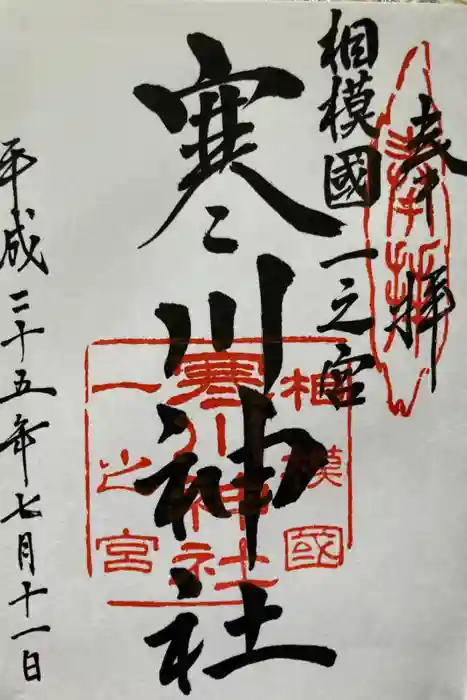 奉拝
相模國一之宮
寒川神社
平成二十五年七月十一日
奉拝
相模國
寒川神社
一之宮